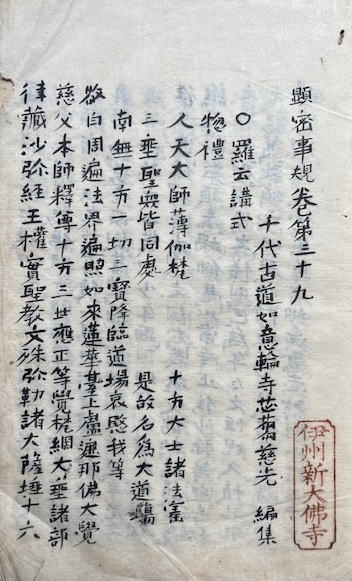 顕密事規卷第三十九
千代古道如意輪寺苾蒭慈光 編集
〇羅云講式
惣禮
人天大師薄伽梵 十方大士諸法
三乗聖衆皆同處 是故名為大道場
南無十方一切三寶降臨道場哀愍我等
敬白周遍法界遍照如來蓮華臺上盧遮那佛大覺
慈父本師釋尊十方三世應正等覺梵網大乗諸部
律蔵沙弥経王權實聖教文殊弥勒諸大薩埵十六
伊州新大佛寺